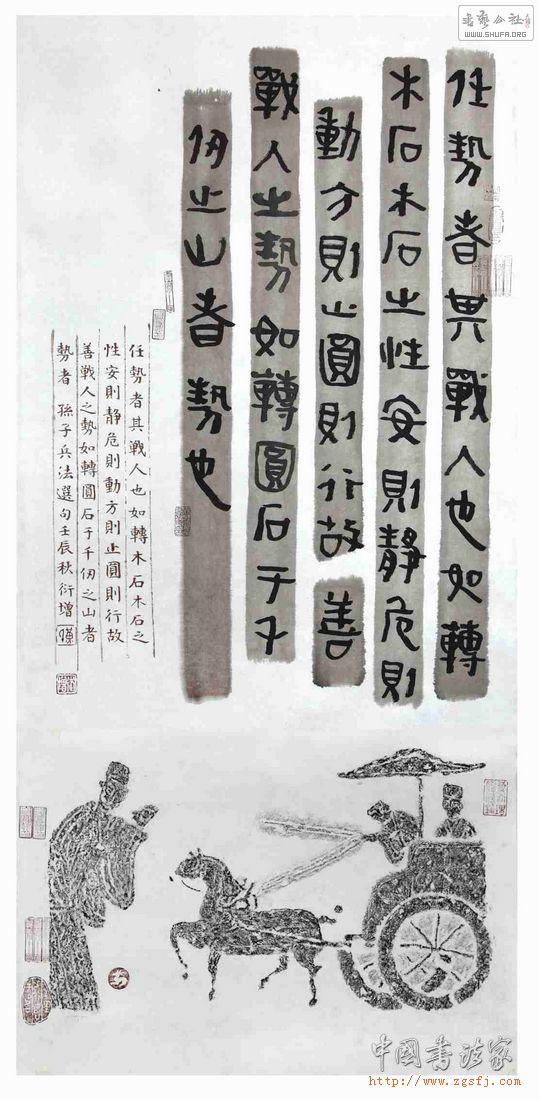 書藝公社
WWW.SHUFA.ORG
任勢者其戰人也如轉
木石木石之性安則靜危則
動方則止圓則行故善
戰人之勢如轉圓石于千
仞之山者勢也
任勢者其戰人也如轉木石木石之
性安則静危則動方則止圓則行故
善戰人之勢如轉圓石于千仞之山者
勢者 孫子兵法選句壬辰秋衍增
中国书法家
http://www.zgsfj.com